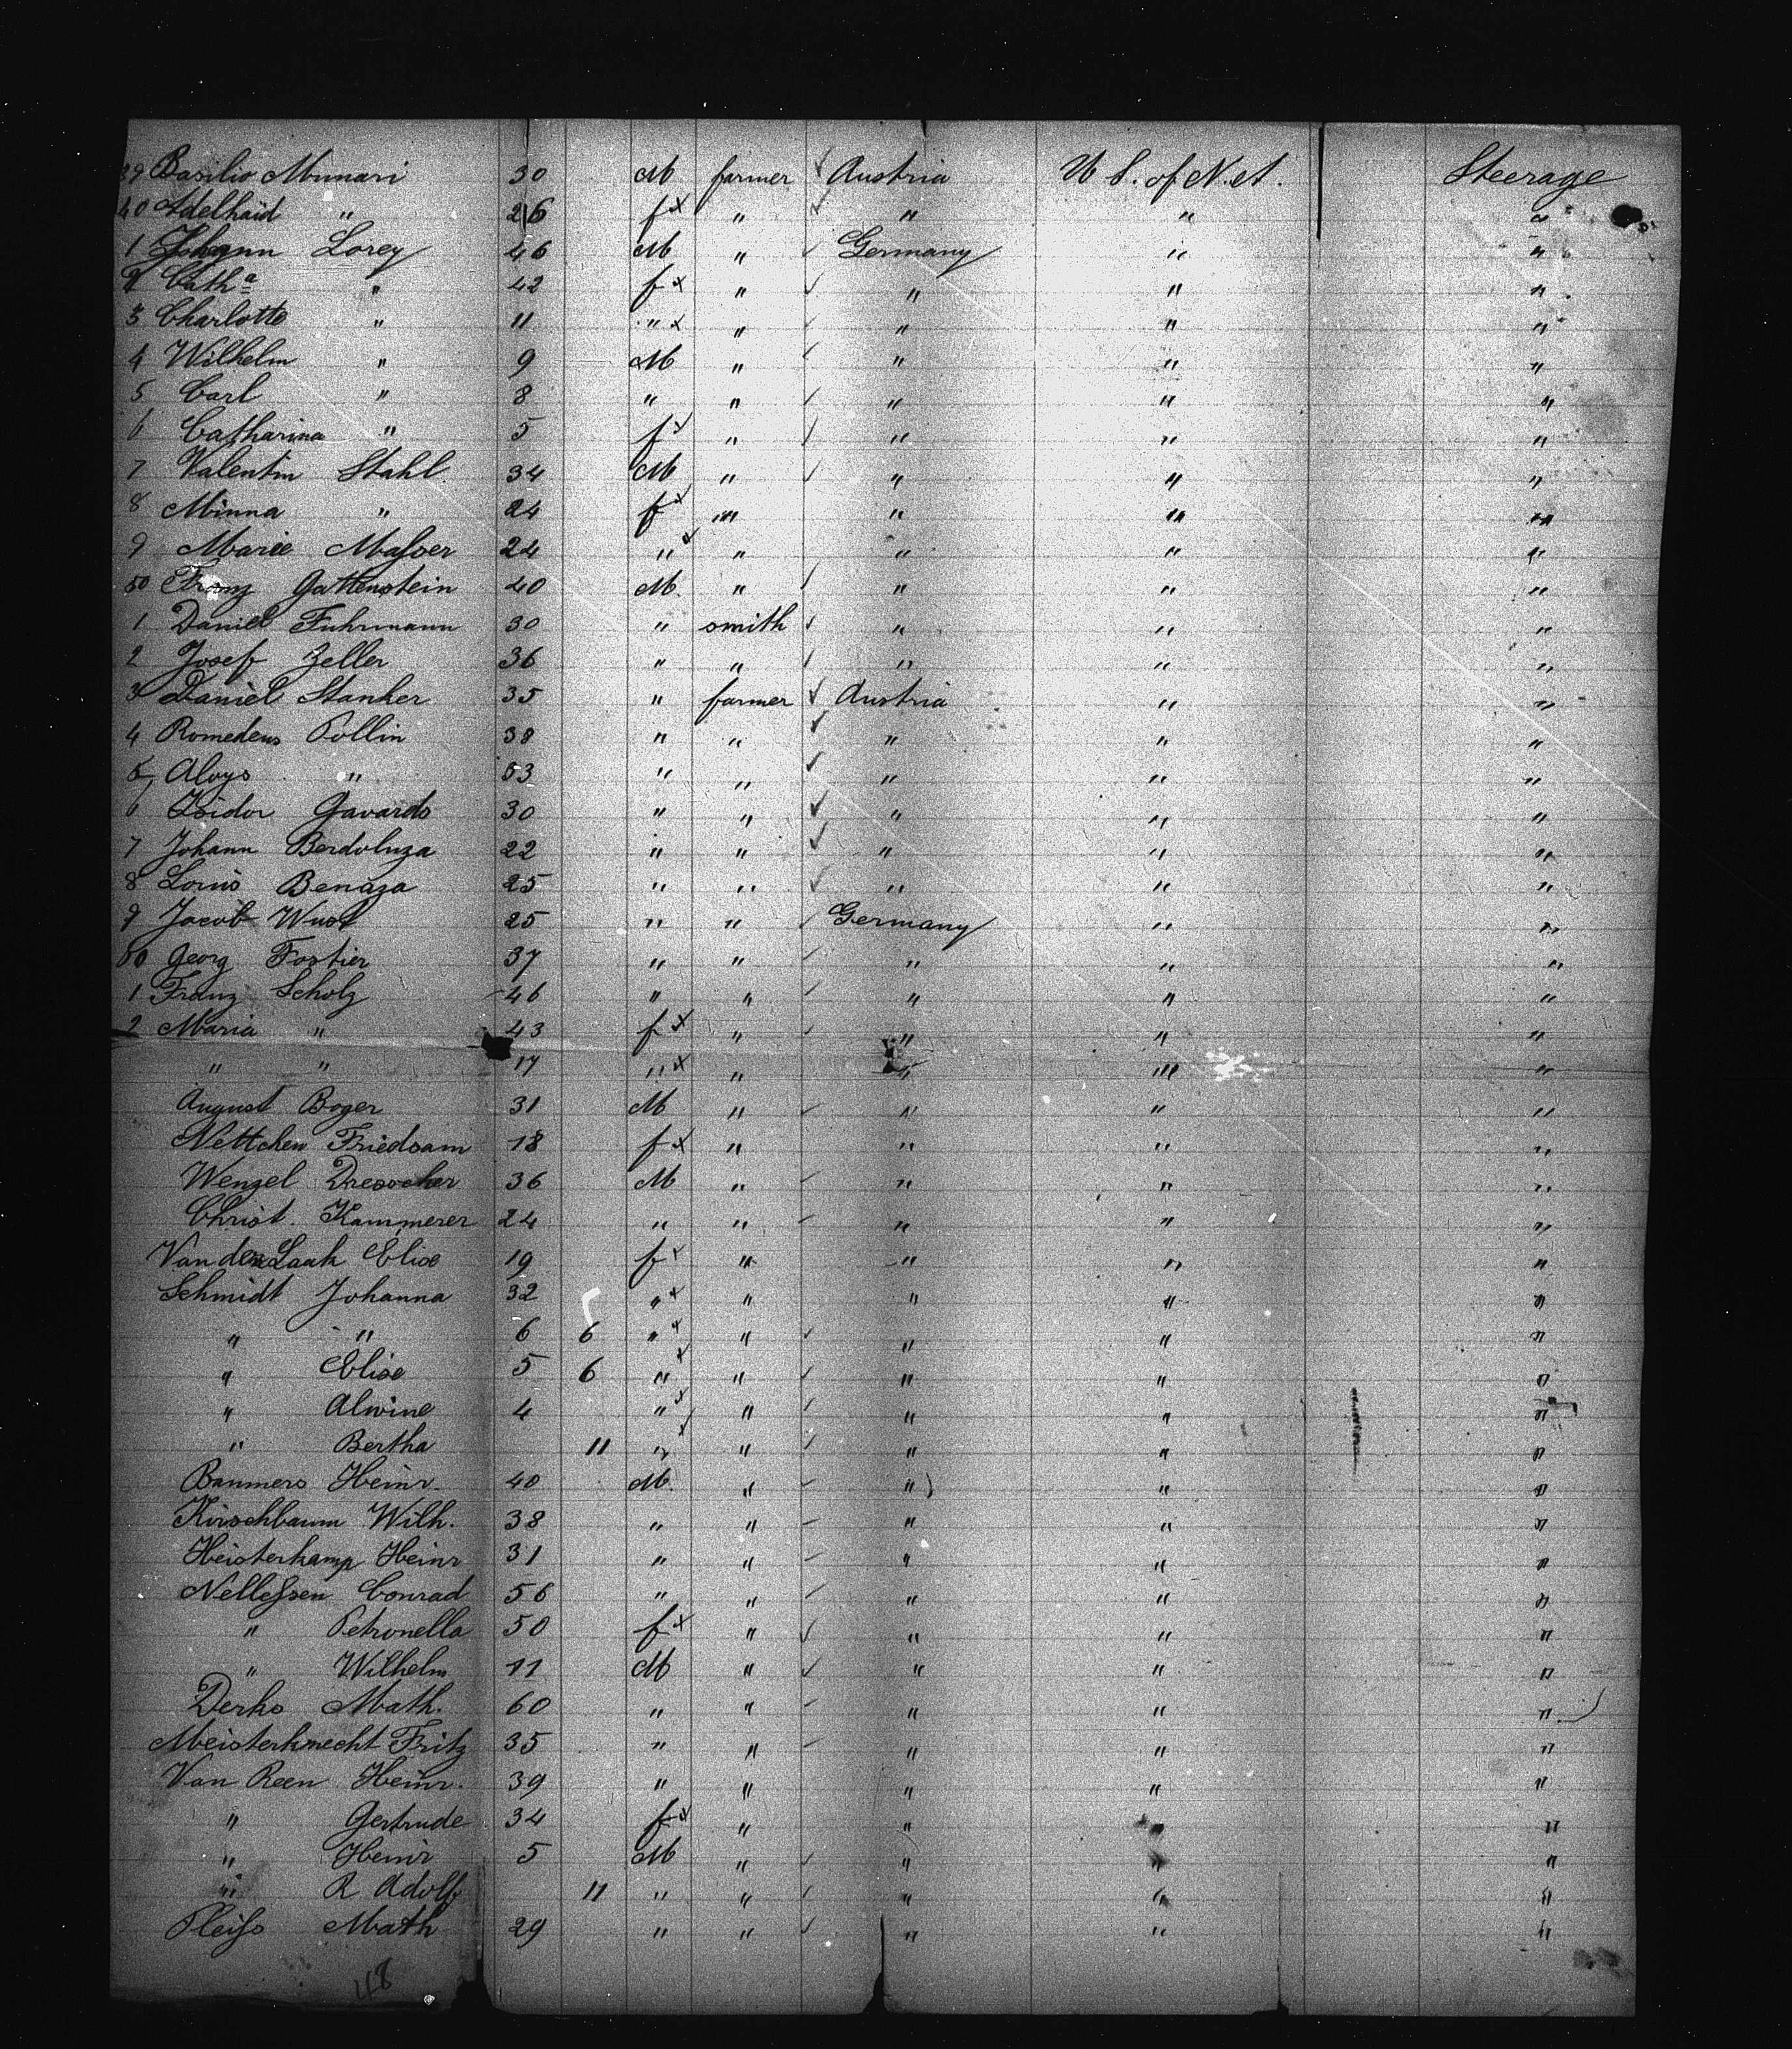 39 Basilio Munari 30 M farmer Austria U S. of N. A. Steerage
40 Adelhaid " 26 f " " " "
1 Johann Lorey 46 M " Germany " "
2 Cath.a " 42 f " " " "
3 Charlotte " 11 " " " " "
4 Wilhelm " 9 M " " " "
5 Carl " 8 " " " " "
6 Catharina " 5 f " " " "
7 Valentin Stahl. 34 M " " " "
8 Minna " 24 f " " " "
9 Marie Maſser 24 " " " " "
50 Franz Gattenstein 40 M " " " "
1 Daniel Fuhrmann 30 " smith " " "
2 Josef Zeller 36 " " " " "
3 Daniel Stanker 35 " farmer Austria " "
4 Romedeus Pollin 38 " " " " "
5 Aloys " 53 " " " " "
6 Isidor Gavardo 30 " " " " "
7 Johann Berdoluza 22 " " " " "
8 Louis Benaza 25 " " " " "
9 Jacob Wust 25 " " Germany " "
60 Georg Fostier 37 " " " " "
1 Franz Scholz 46 " " " " "
2 Maria " 43 f " " " "
" " 17 " " " " "
August Boger 31 M " " " "
Nettchen Friedsam 18 f " " " "
Wenzel Drescher 36 M " " " "
Christ. Kammerer 24 " " " " "
Van der Laak Elise 19 f " " " "
Schmidt Johanna 32 " " " " "
" " 6 6 " " " " "
" Elise 5 6 " " " " "
" Alwine 4 " " " " "
" Bertha 11 " " " " "
Bammers Heinr. 40 M. " " " "
Kirschbaum Wilh. 38 " " " " "
Heisterkamp Heinr 31 " " " " "
Nelleſsen Conrad 56 " " " " "
" Petronella 50 f " " " "
" Wilhelm 11 M " " " "
Derks Math. 60 " " " " "
Meisterknecht Fritz 35 " " " " "
Van Reen Heinr. 39 " " " " "
" Gertrude 34 f " " " "
" Heinr 5 M " " " "
" R Adolf 11 " " " " "
Pleiſs Math 29 " " " " "
48